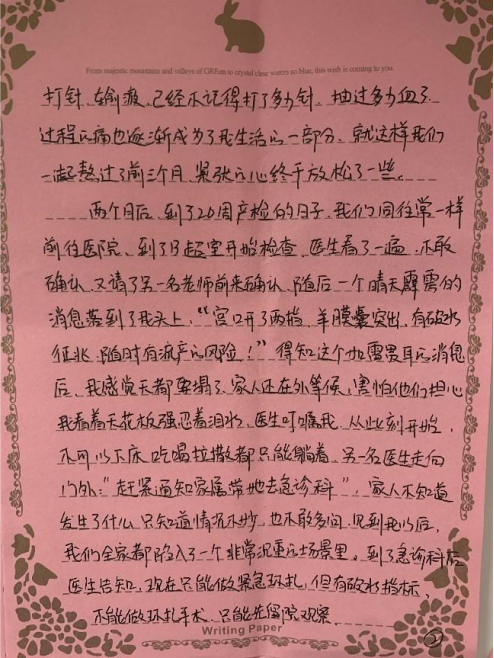 From majestic mountains and valleys of GREen to crystal clear waters so blue, this wish is coming to you.
打针、输液、已经不记得打了多少针、抽过多少血了.
过程的痛也逐渐成为了我生活的一部分、就这样我们
一起熬过了前三个月、紧张的心终于放松了一些。
两个月后、到了20周产检的日子、我们同往常一样
前往医院、到了B超室开始检查、医生看了一遍、不敢
确认、又请了另一名老师前来确认、随后一个晴天霹雳的
消息落到了我头上、“宫口开了两指、羊膜囊突出、有破水
征兆、随时有流产的风险！”得知这个如雷贯耳的消息
后、我感觉天都要塌了、家人还在外等候、害怕他们担心
我看着天花板强忍着泪水、医生叮嘱我、从此刻开始、
不可以下床、吃喝拉撒都只能躺着、另一名医生走向
门外:“赶紧通知家属带她去急诊科”、家人不知道
发生了什么、只知道情况不妙、也不敢多问、见到我以后、
我们全家都陷入了一个非常沉重的场景里、到了急诊科后
医生告知、现在只能做紧急环扎、但有破水指标、
不能做环扎手术、只能先留院观察、
Writing Paper
②